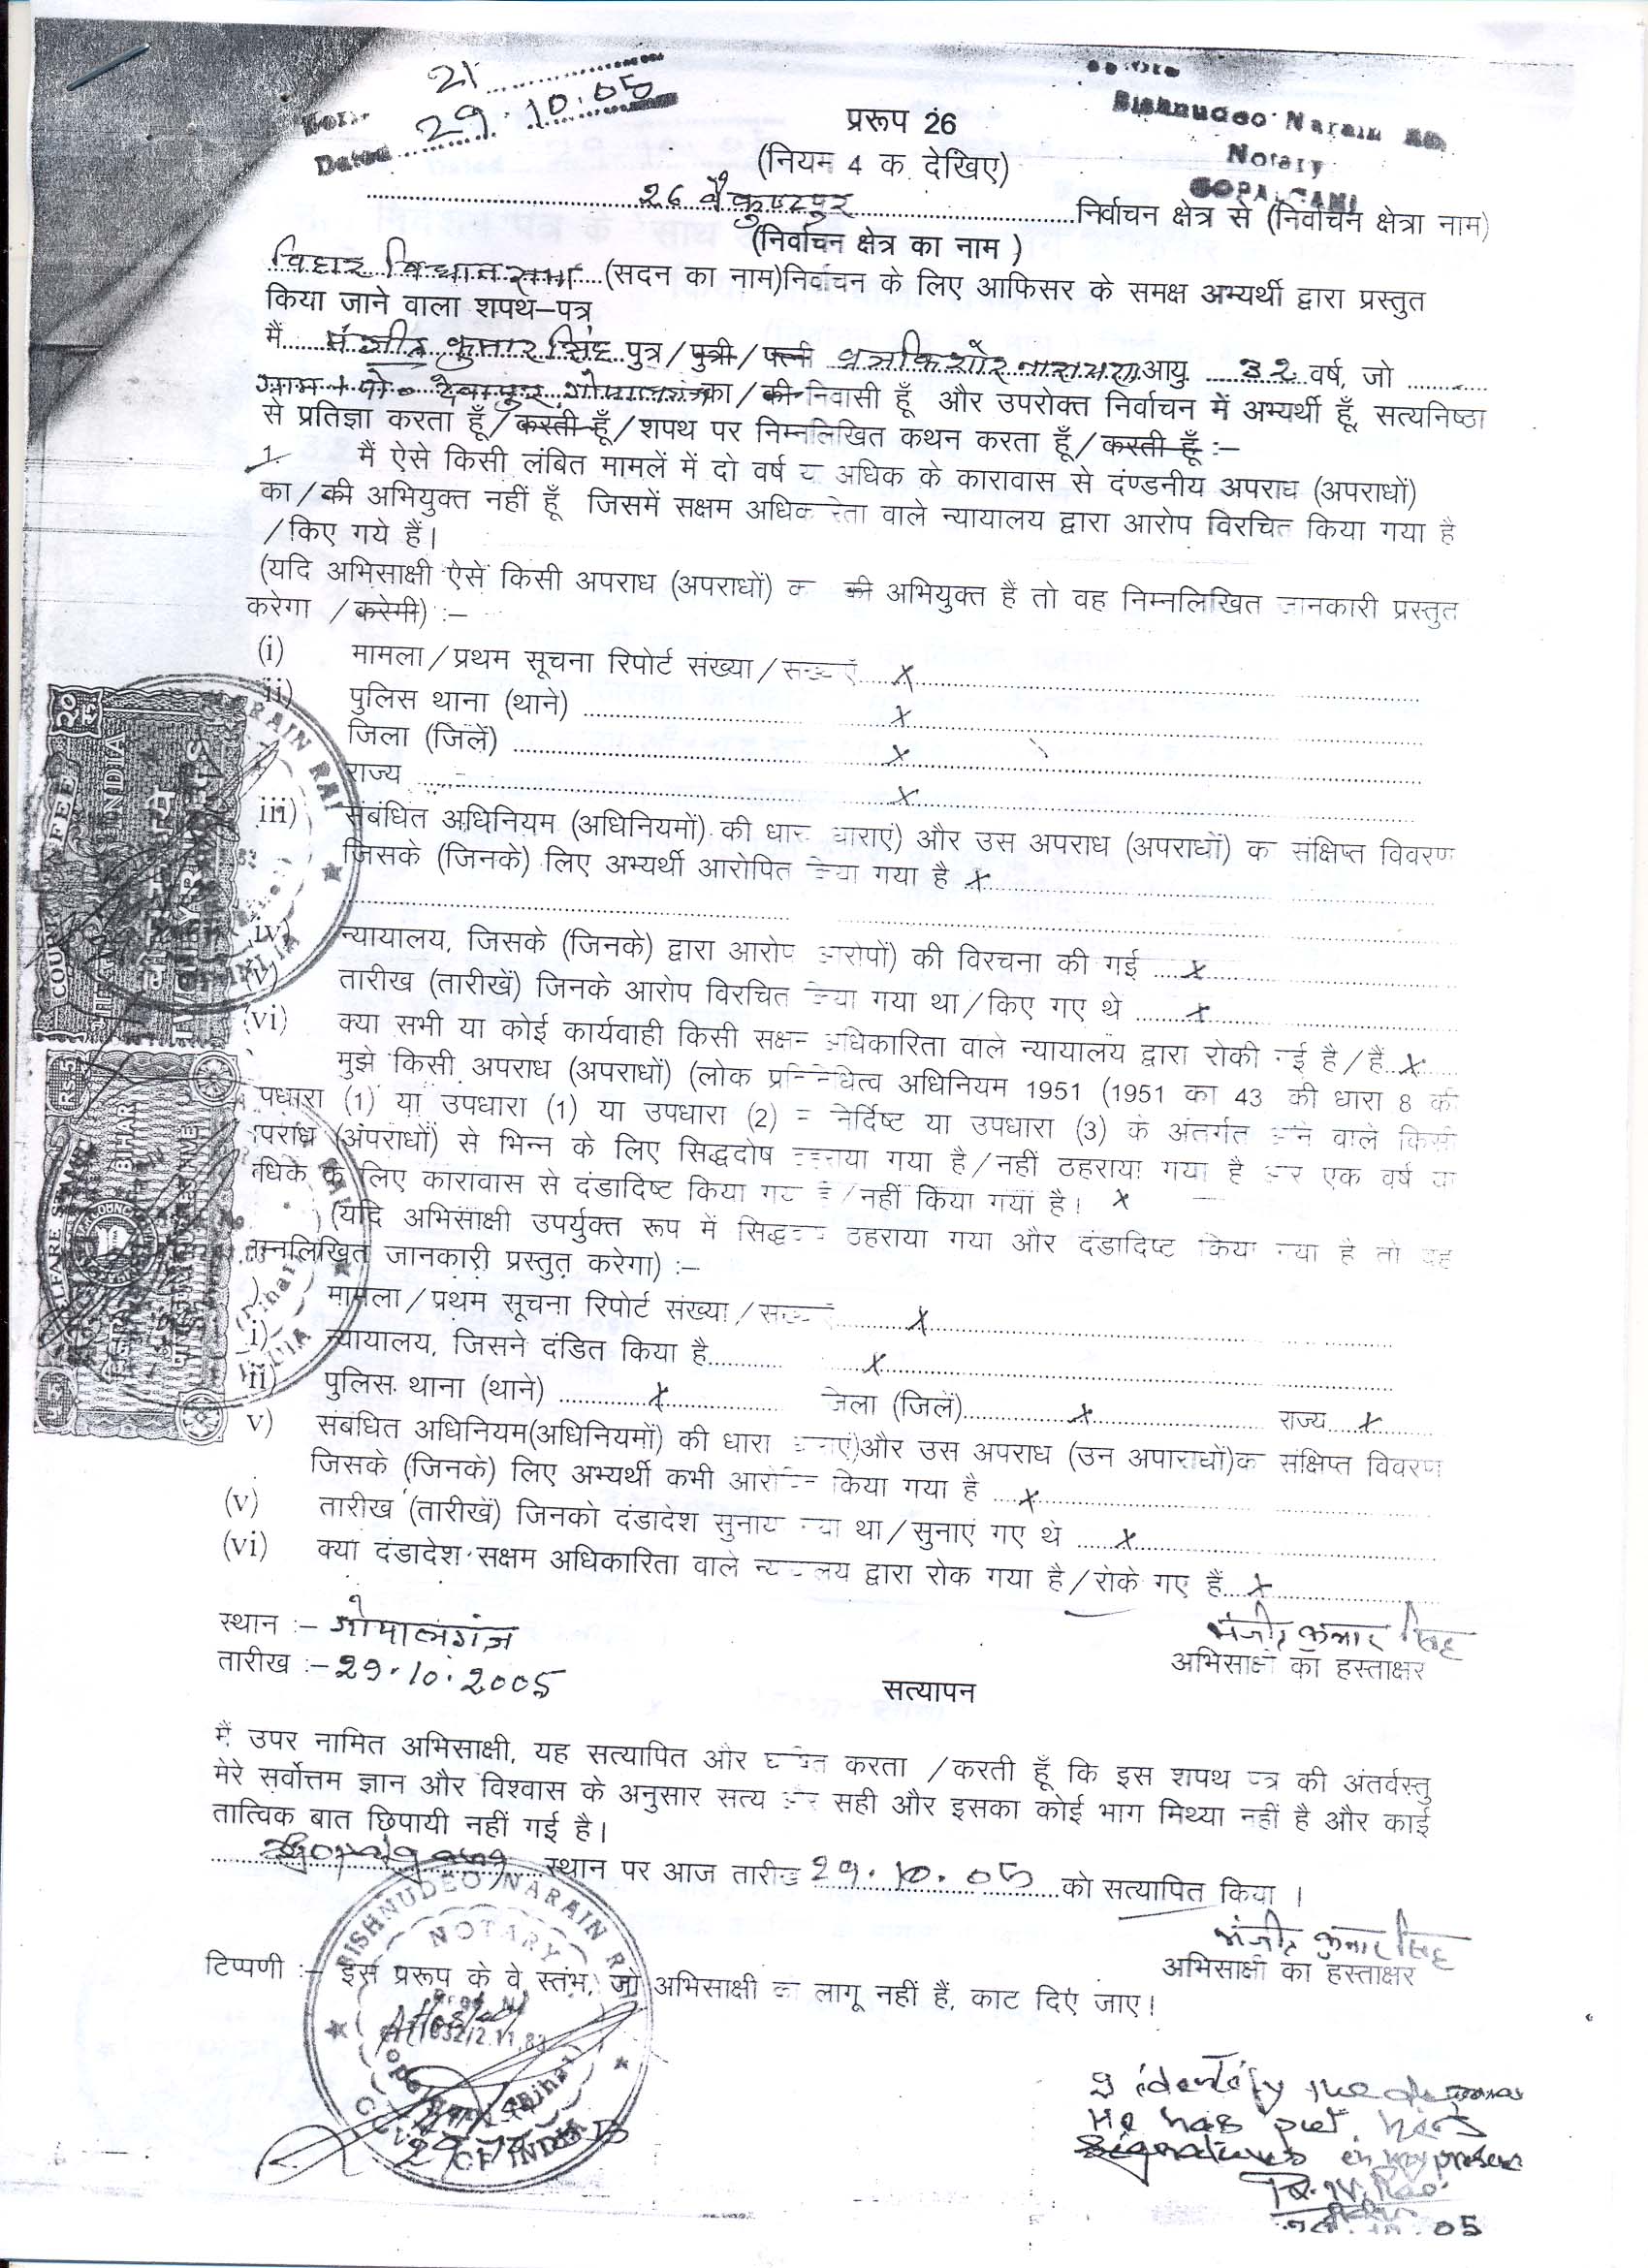 21
Dated 29.10.05
Bishnudeo Narain
Notary
प्ररूप 26
(नियम 4 क देखिए)
26 बैकुण्ठपुर निर्वाचन क्षेत्र से (निर्वाचन क्षेत्रा नाम)
(निर्वाचन क्षेत्र का नाम )
बिहार विधान सभा (सदन का नाम)निर्वाचन के लिए आफिसर के समक्ष अभ्यर्थी द्वारा प्रस्तुत
किया जाने वाला शपथ–पत्र
मैं मंजीत कुमार सिंह पुत्र/पुत्री/पत्नी ब्रजकिशोर नारायण आयु 32 वर्ष, जो
ग्राम + पो० देवापुर गोपालगंज का/की निवासी हूँ और उपरोक्त निर्वाचन में अभ्यर्थी हूँ, सत्यनिष्ठा
से प्रतिज्ञा करता हूँ/करती हूँ/शपथ पर निम्नलिखित कथन करता हूँ/करती हूँ :–
1. मैं ऐसे किसी लंबित मामलें में दो वर्ष या अधिक के कारावास से दंण्डनीय अपराध (अपराधों)
का/की अभियुक्त नहीं हूँ जिसमें सक्षम अधिकारिता वाले न्यायालय द्वारा आरोप विरचित किया गया है
/किए गये हैं।
(यदि अभिसाक्षी ऐसें किसी अपराध (अपराधों) का की अभियुक्त हैं तो वह निम्नलिखित जानकारी प्रस्तुत
करेगा /करेगी) :–
(i) मामला/प्रथम सूचना रिपोर्ट संख्या/संख्याएं X
ii) पुलिस थाना (थाने) X
जिला (जिलें) X
राज्य X
iii) संबंधित अधिनियम (अधिनियमों) की धारा धाराएं) और उस अपराध (अपराधों) का संक्षिप्त विवरण
जिसके (जिनके) लिए अभ्यर्थी आरोपित किया गया है X
iv) न्यायालय, जिसके (जिनके) द्वारा आरोप आरोपों) की विरचना की गई X
v) तारीख (तारीखें) जिनके आरोप विरचित किया गया था/किए गए थे X
(vi) क्या सभी या कोई कार्यवाही किसी सक्षम अधिकारिता वाले न्यायालय द्वारा रोकी गई है/हैं X
मुझे किसी अपराध (अपराधों) (लोक प्रतिनिधित्व अधिनियम 1951 (1951 का 43 की धारा 8 की
पधारा (1) या उपधारा (1) या उपधारा (2) में निर्दिष्ट या उपधारा (3) के अंतर्गत आने वाले किसी
पराध (अपराधों) से भिन्न के लिए सिद्धदोष ठहराया गया है/नहीं ठहराया गया है और एक वर्ष या
धिक के लिए कारावास से दंडादिष्ट किया गया है/नहीं किया गया है। X
(यदि अभिसाक्षी उपर्युक्त रूप में सिद्धदोष ठहराया गया और दंडादिष्ट किया गया है तो वह
म्नलिखित जानकारी प्रस्तुत करेगा) :–
) मामला/प्रथम सूचना रिपोर्ट संख्या/संख्याएं X
i) न्यायालय, जिसने दंडित किया है X
ii) पुलिस थाना (थाने) X जिला (जिलें) X राज्य X
v) संबंधित अधिनियम(अधिनियमों) की धारा धाराएं)और उस अपराध (उन अपाराधों)का संक्षिप्त विवरण
जिसके (जिनके) लिए अभ्यर्थी कभी आरोपित किया गया है X
(v) तारीख (तारीखें) जिनको दंडादेश सुनाया गया था/सुनाएं गए थे X
(vi) क्या दंडादेश सक्षम अधिकारिता वाले न्यायालय द्वारा रोक गया है/रोके गए हैं X
स्थान :– गोपालगंज
तारीख :– 29.10.2005
मंजीत कुमार सिंह
अभिसाक्षी का हस्ताक्षर
सत्यापन
मैं उपर नामित अभिसाक्षी, यह सत्यापित और घोषित करता /करती हूँ कि इस शपथ पत्र की अंतर्वस्तु
मेरे सर्वोत्तम ज्ञान और विश्वास के अनुसार सत्य और सही और इसका कोई भाग मिथ्या नहीं है और काई
तात्विक बात छिपायी नहीं गई है।
Gopalganj स्थान पर आज तारीख 29.10.05 को सत्यापित किया ।
मंजीत कुमार सिंह
अभिसाक्षी का हस्ताक्षर
टिप्पणी :– इस प्ररूप के वे स्तंभ, जो अभिसाक्षी को लागू नहीं हैं, काट दिए जाए।
BISHNUDEO NARAIN RAI
NOTARY
I identify the
He has put his
Signatures in my
05
COURT FEE
INDIA
BIHAR